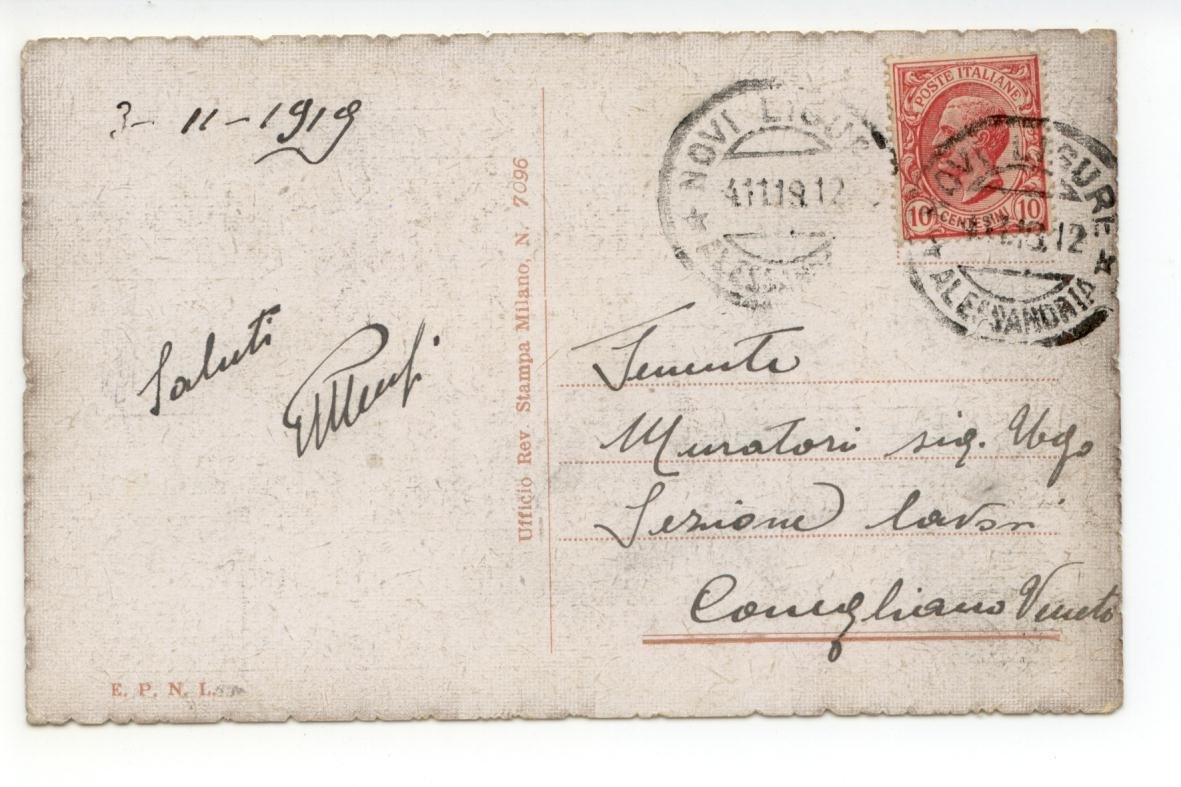 3-11-1919
Saluti
Ufficio Rev Stampa Milano, N. 7096
E. P. N. L.
NOVI LIGUR
4.11.19.12
ALESSAN
POSTE ITALIANE
10 CENTESIMI 10
NOVI LIGURE
12
ALESSANDRIA
Tenente
Muratori sig. Ugo
Sezione lavori
Conegliano Veneto